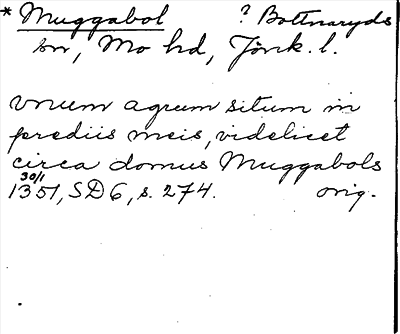 * Muggabol ? Bottnaryds
sn, Mo hd, Jönk. l.
vnum agrum situm in
prediis meis, videlicet
circa domus Muggabols
30/1
1351, SD 6, s. 274. orig.